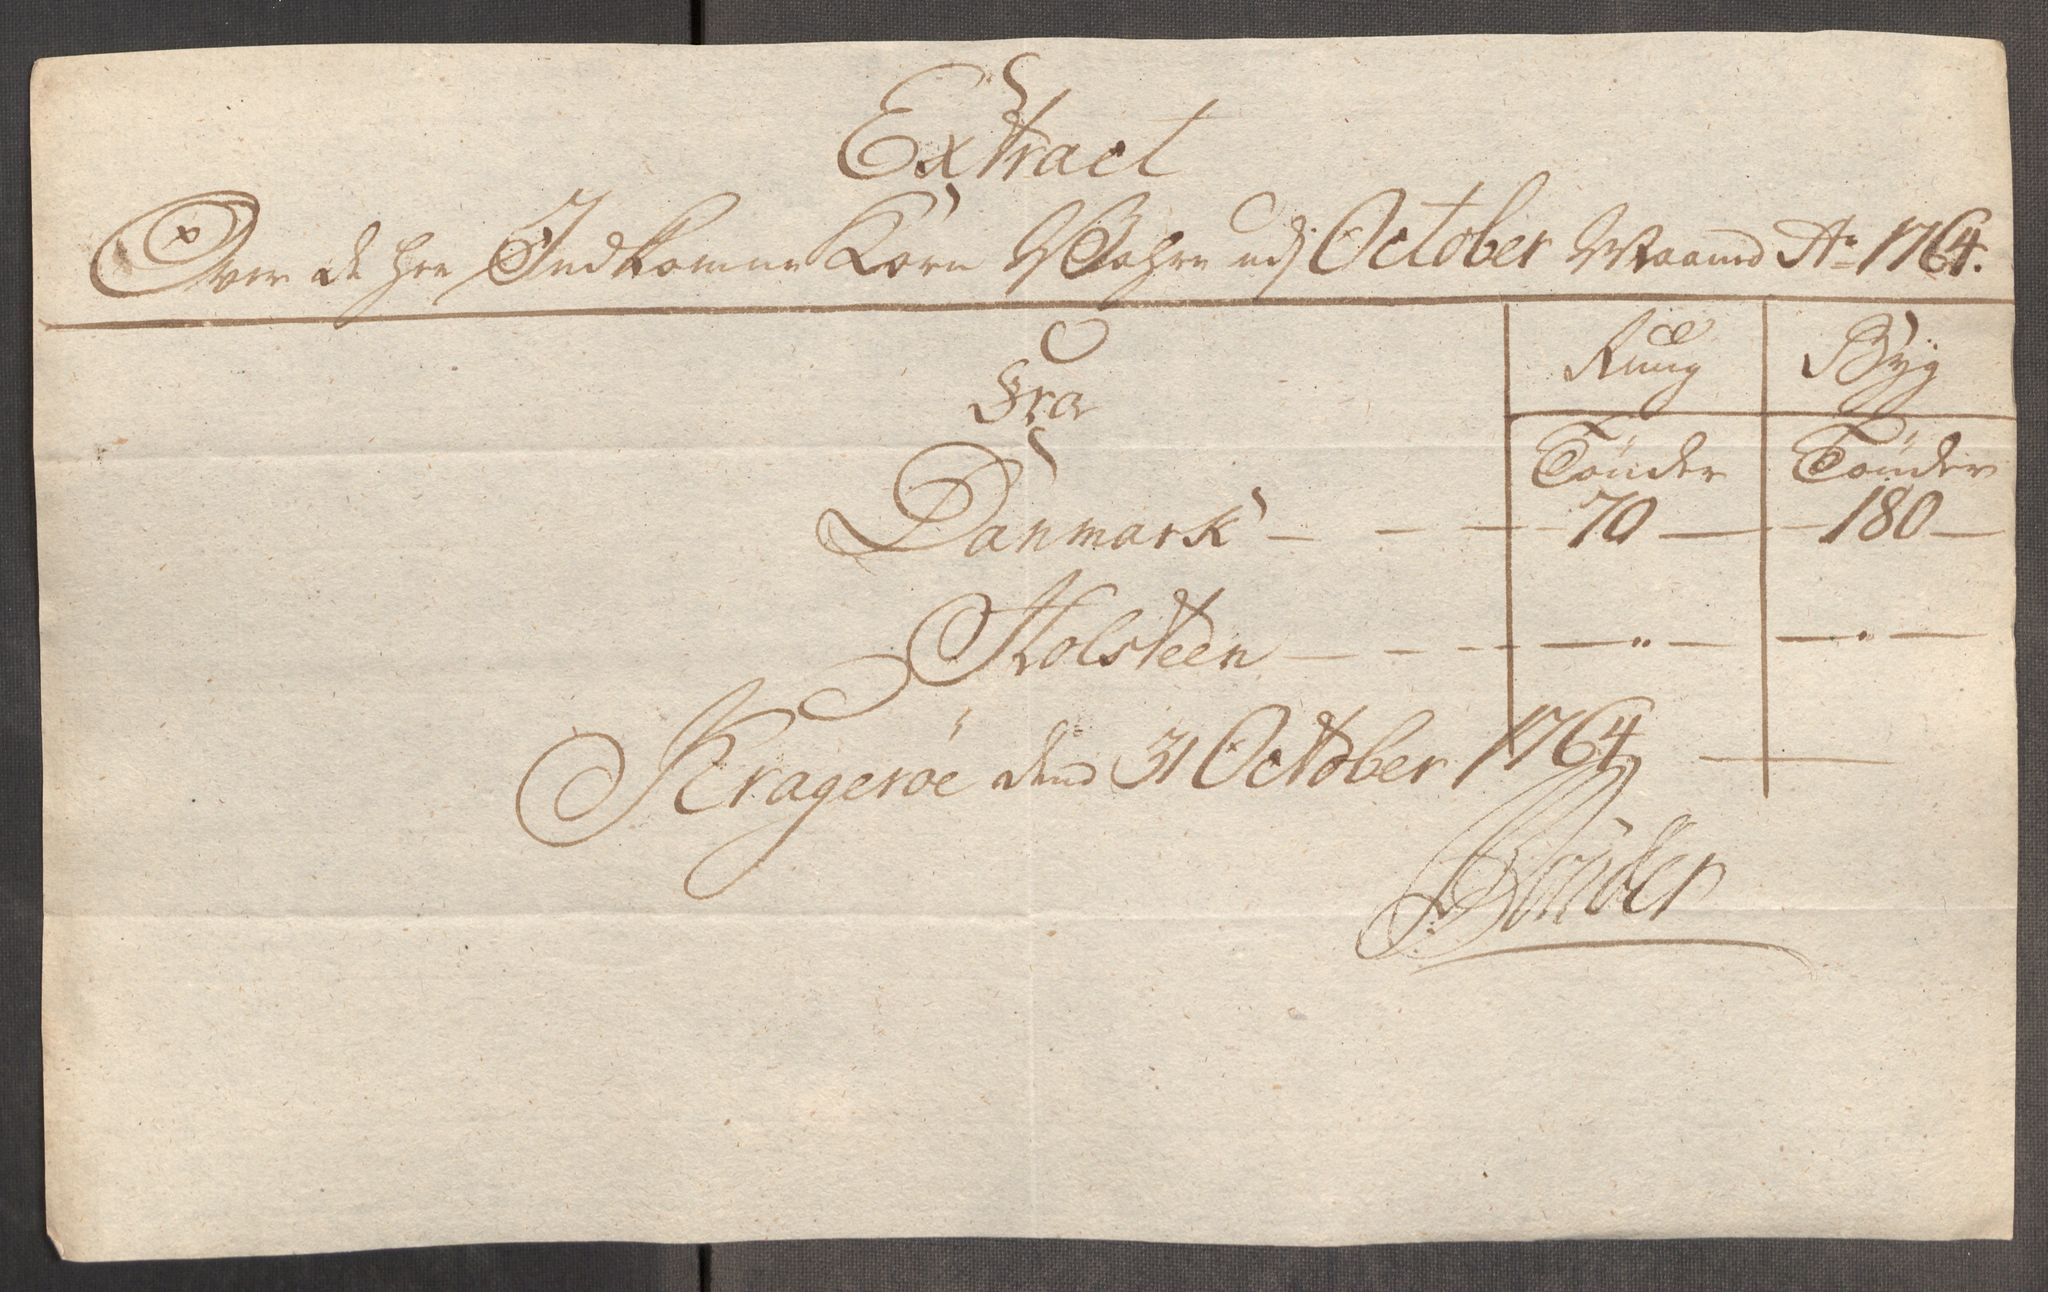 Extract
Over de her Indkomne Korn Wahre udj October Maaned Ao 1764.
Rung Byg
Fra
Tønder Tønder
Danmark - - - 70 - 180 -
Holsteen - - - - " - - " -
Kragerøe dend 31 October 1764